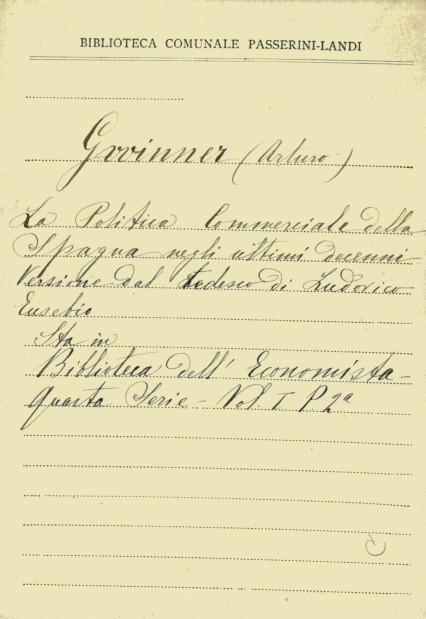 BIBLIOTECA COMUNALE PASSERINI-LANDI
Gwinner (Arturo)
La Politica Commerciale della
Spagna negli ultimi decenni
Versione dal tedesco di Ludovico
Eusebio
Sta in
Biblioteca dell' Economista -
quarta Serie - Vol I P. 2ª